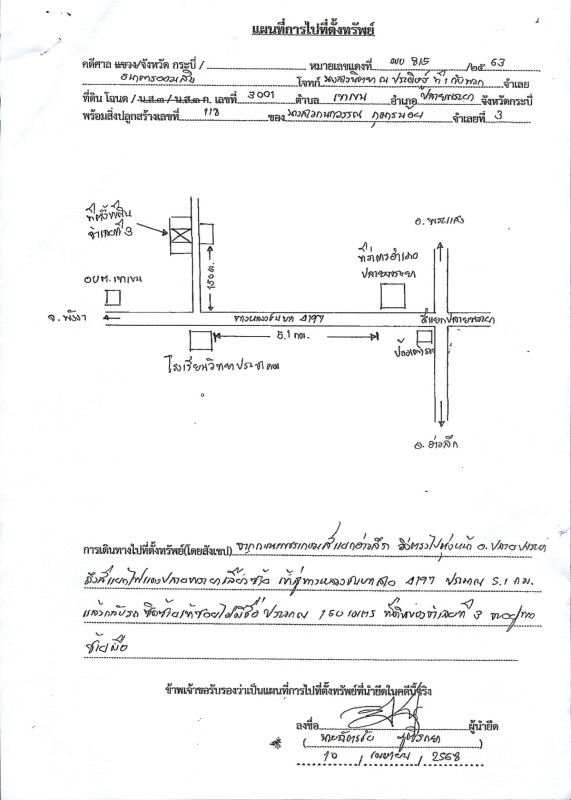 แผนที่การไปที่ตั้งทรัพย์
คดีศาล แขวง/จังหวัด กระบี่ / หมายเลขแดงที่ ผบ 815 /๒๕ 63
ธนาคารออมสิน โจทก์ ที่ 1 กับพวก จำเลย
ที่ดิน โฉนด / น.ส.๓ / น.ส.๓ ก. เลขที่ 3001 ตำบล เขาเขน อำเภอ ปลายพระยา จังหวัดกระบี่
พร้อมสิ่งปลูกสร้างเลขที่ 118 ของ จำเลยที่ 3
ที่ตั้งที่ดิน
จำเลยที่ 3
อ. พระแสง
ที่ว่าการอำเภอ
ปลายพระยา
150 ม.
อบต. เขาเขน
จ. พังงา
ทางหลวงชนบท 4197
สี่แยกปลายพระยา
5.1 กม.
ป้อมตำรวจ
โรงเรียน
อ. อ่าวลึก
การเดินทางไปที่ตั้งทรัพย์(โดยสังเขป) สี่แยกอ่าวลึก อ. ปลายพระยา
ถึงสี่แยกไฟแดงปลายพระยาเลี้ยวซ้าย เข้าสู่ทางหลวงชนบท 4197 ประมาณ 5.1 กม.
แล้วกลับรถ ชิดซ้ายเข้าซอยไม่มีชื่อ ประมาณ 150 เมตร ที่ดินของจำเลยที่ 3 อยู่ทาง
ซ้ายมือ
ข้าพเจ้าขอรับรองว่าเป็นแผนที่การไปที่ตั้งทรัพย์ที่นำยึดในคดีนี้จริง
ลงชื่อ ผู้นำยึด
10 / เมษายน / 2568